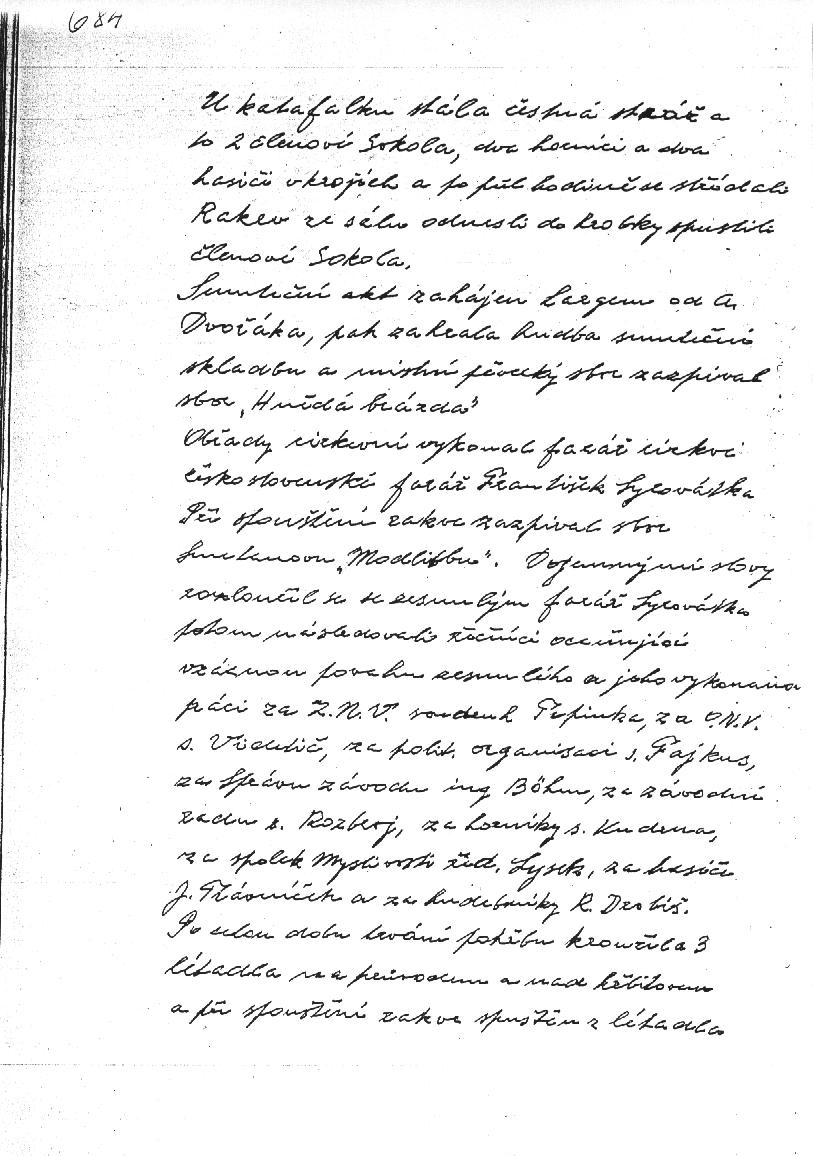 684
U katafalku stála čestná stráž a
to 2 členové Sokola, dva horníci a dva
hasiči v krojích a po půl hodině se střídali
Rakev ze sálu odnesli do hrobky spustili
členové Sokola.
Smuteční akt zahájen Largem od A.
Dvořáka, pak zahrála hudba smuteční
skladbu a místní pěvecký sbor zazpíval
sbor „Hnědá brázda"
Obřady církevní vykonal farář církve
československé farář František Syrovátka
Při spouštění rakve zazpíval sbor
Smetanovu „Modlitbu". Dojemnými slovy
rozloučil se se zesnulým farář Syrovátka
potom následovali řečníci oceňující
vzácnou povahu zesnulého a jeho vykonanou
práci za Z.N.V. soudruh Pepinka, za O.N.V.
s. Vidulič, za polit. organisaci s. Fajkus,
za Správu závodu ing Böhm, za závodní
radu s. Rozberj, za horníky s. Kudrna,
za spolek Myslivosti řed. Lysek, za hasiče
J. Trávníček a za hudebníky R. Drobiš.
Po celou dobu trvání pohřbu kroužila 3
létadla nad průvodem a nad hřbitovem
a při spouštění rakve spuštěn z létadla